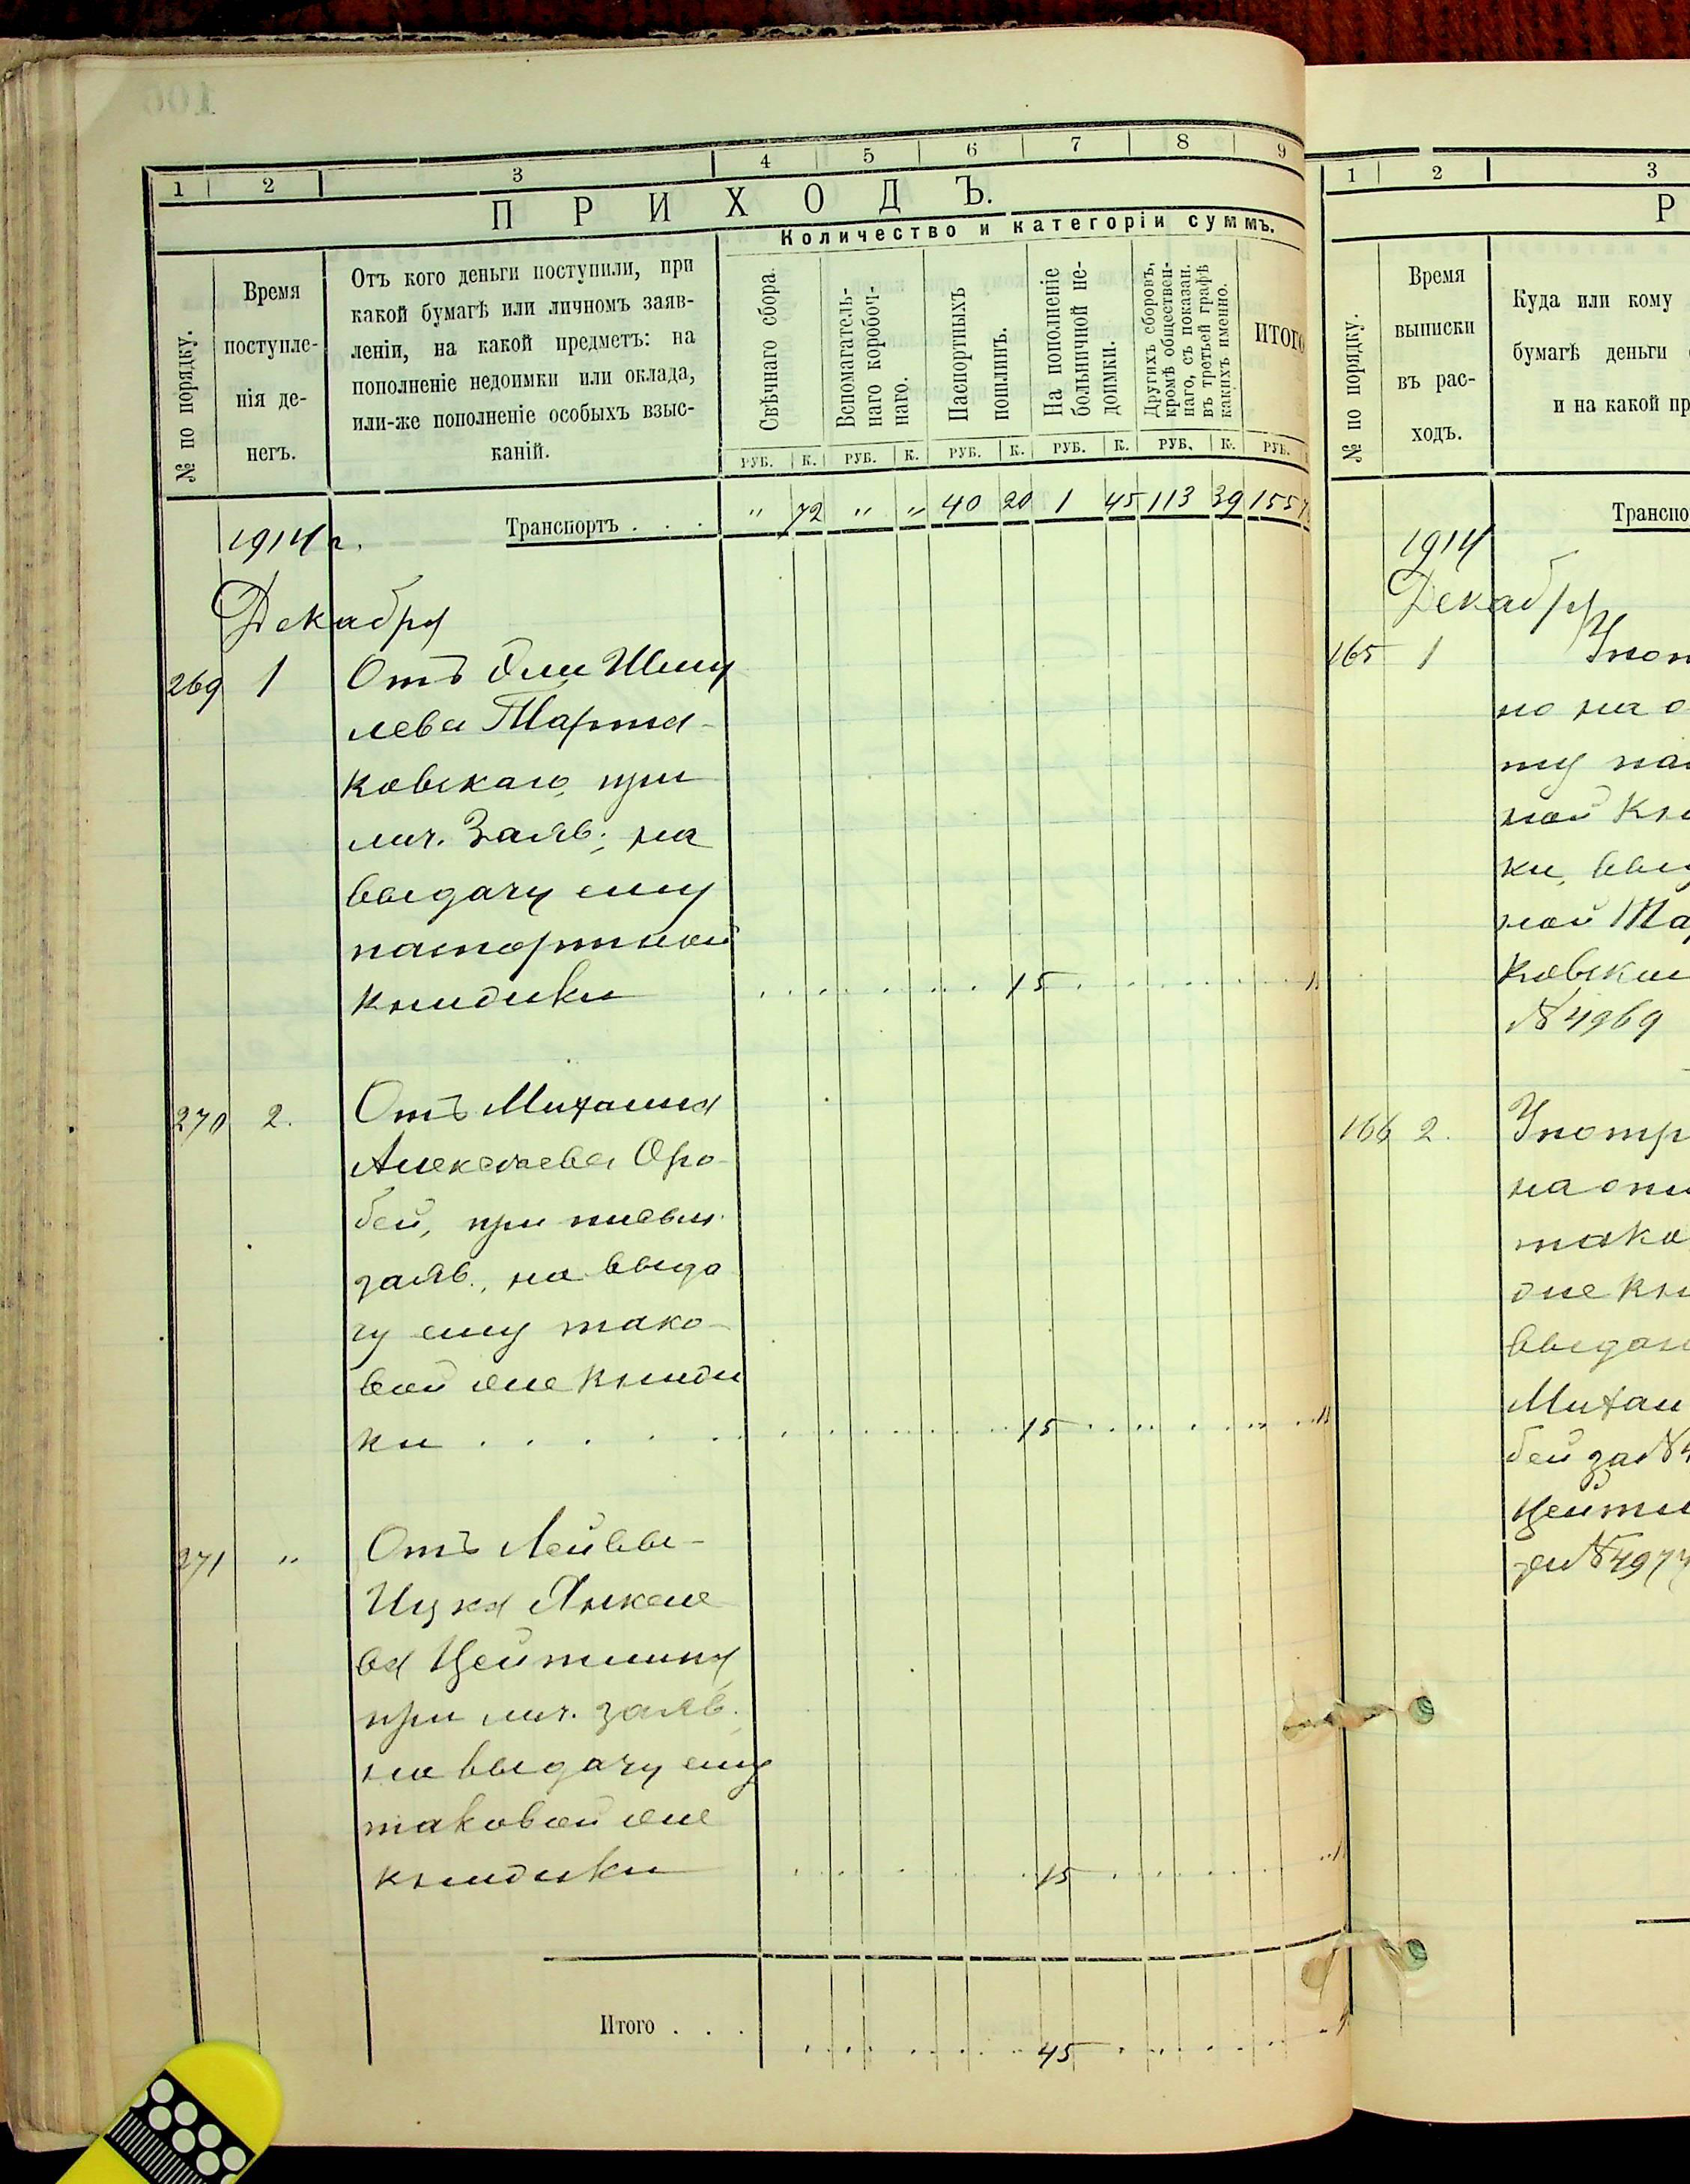 1 2 3 4 5 6 7 8 9
ПРИХОДЪ.
Количество и категоріи суммъ.
№ по порядку.
Время
поступле-
нія де-
негъ.
Отъ кого деньги поступили, при
какой бумагѣ или личномъ заяв-
леніи, на какой предметъ: на
пополненіе недоимки или оклада,
или-же пополненіе особыхъ взыс-
каній.
Свѣчнаго сбора.
Вспомагатель-
наго коробоч-
наго.
Паспортныхъ
пошлинъ.
На пополненіе
больничной не-
доимки.
Другихъ сборовъ,
кромѣ обществен-
наго, съ показан.
въ третьей графѣ
какихъ именно.
ИТОГО
РУБ. К. РУБ. К. РУБ. К. РУБ. К. РУБ. К. РУБ.
Транспортъ . . . " 72 " " 40 20 1 45 113 39 155
1914 г.
Декабря
269 1 Отъ Эли Шму
лева Тарта-
ковскаго, при
лич. заяв., на
выдачу ему
паспортной
книжки 15
270 2. Отъ Михаила
Алексѣева Оро-
бей, при письм.
заяв., на выда
чу ему тако-
вой же книж
ки . . . . . 15
271 " Отъ Лейбы-
Ицка Янкеле
ва Цейтлина
при лич. заяв.
на выдачу ему
таковой же
книжки 15
Итого . . . 45
1 2 3
Р
№ по порядку.
Время
выписки
въ рас-
ходъ.
Куда или кому
бумагѣ деньги
и на какой пр
Транспо
1914
Декабря
165 1 Упот
но на о
ту пас
ной кни
ки, выд
ной Та
ковском
№ 4969
166 2. Употр
на опл
тако
же кни
выдан
Михаи
бей за №
Цейтл
за № 497